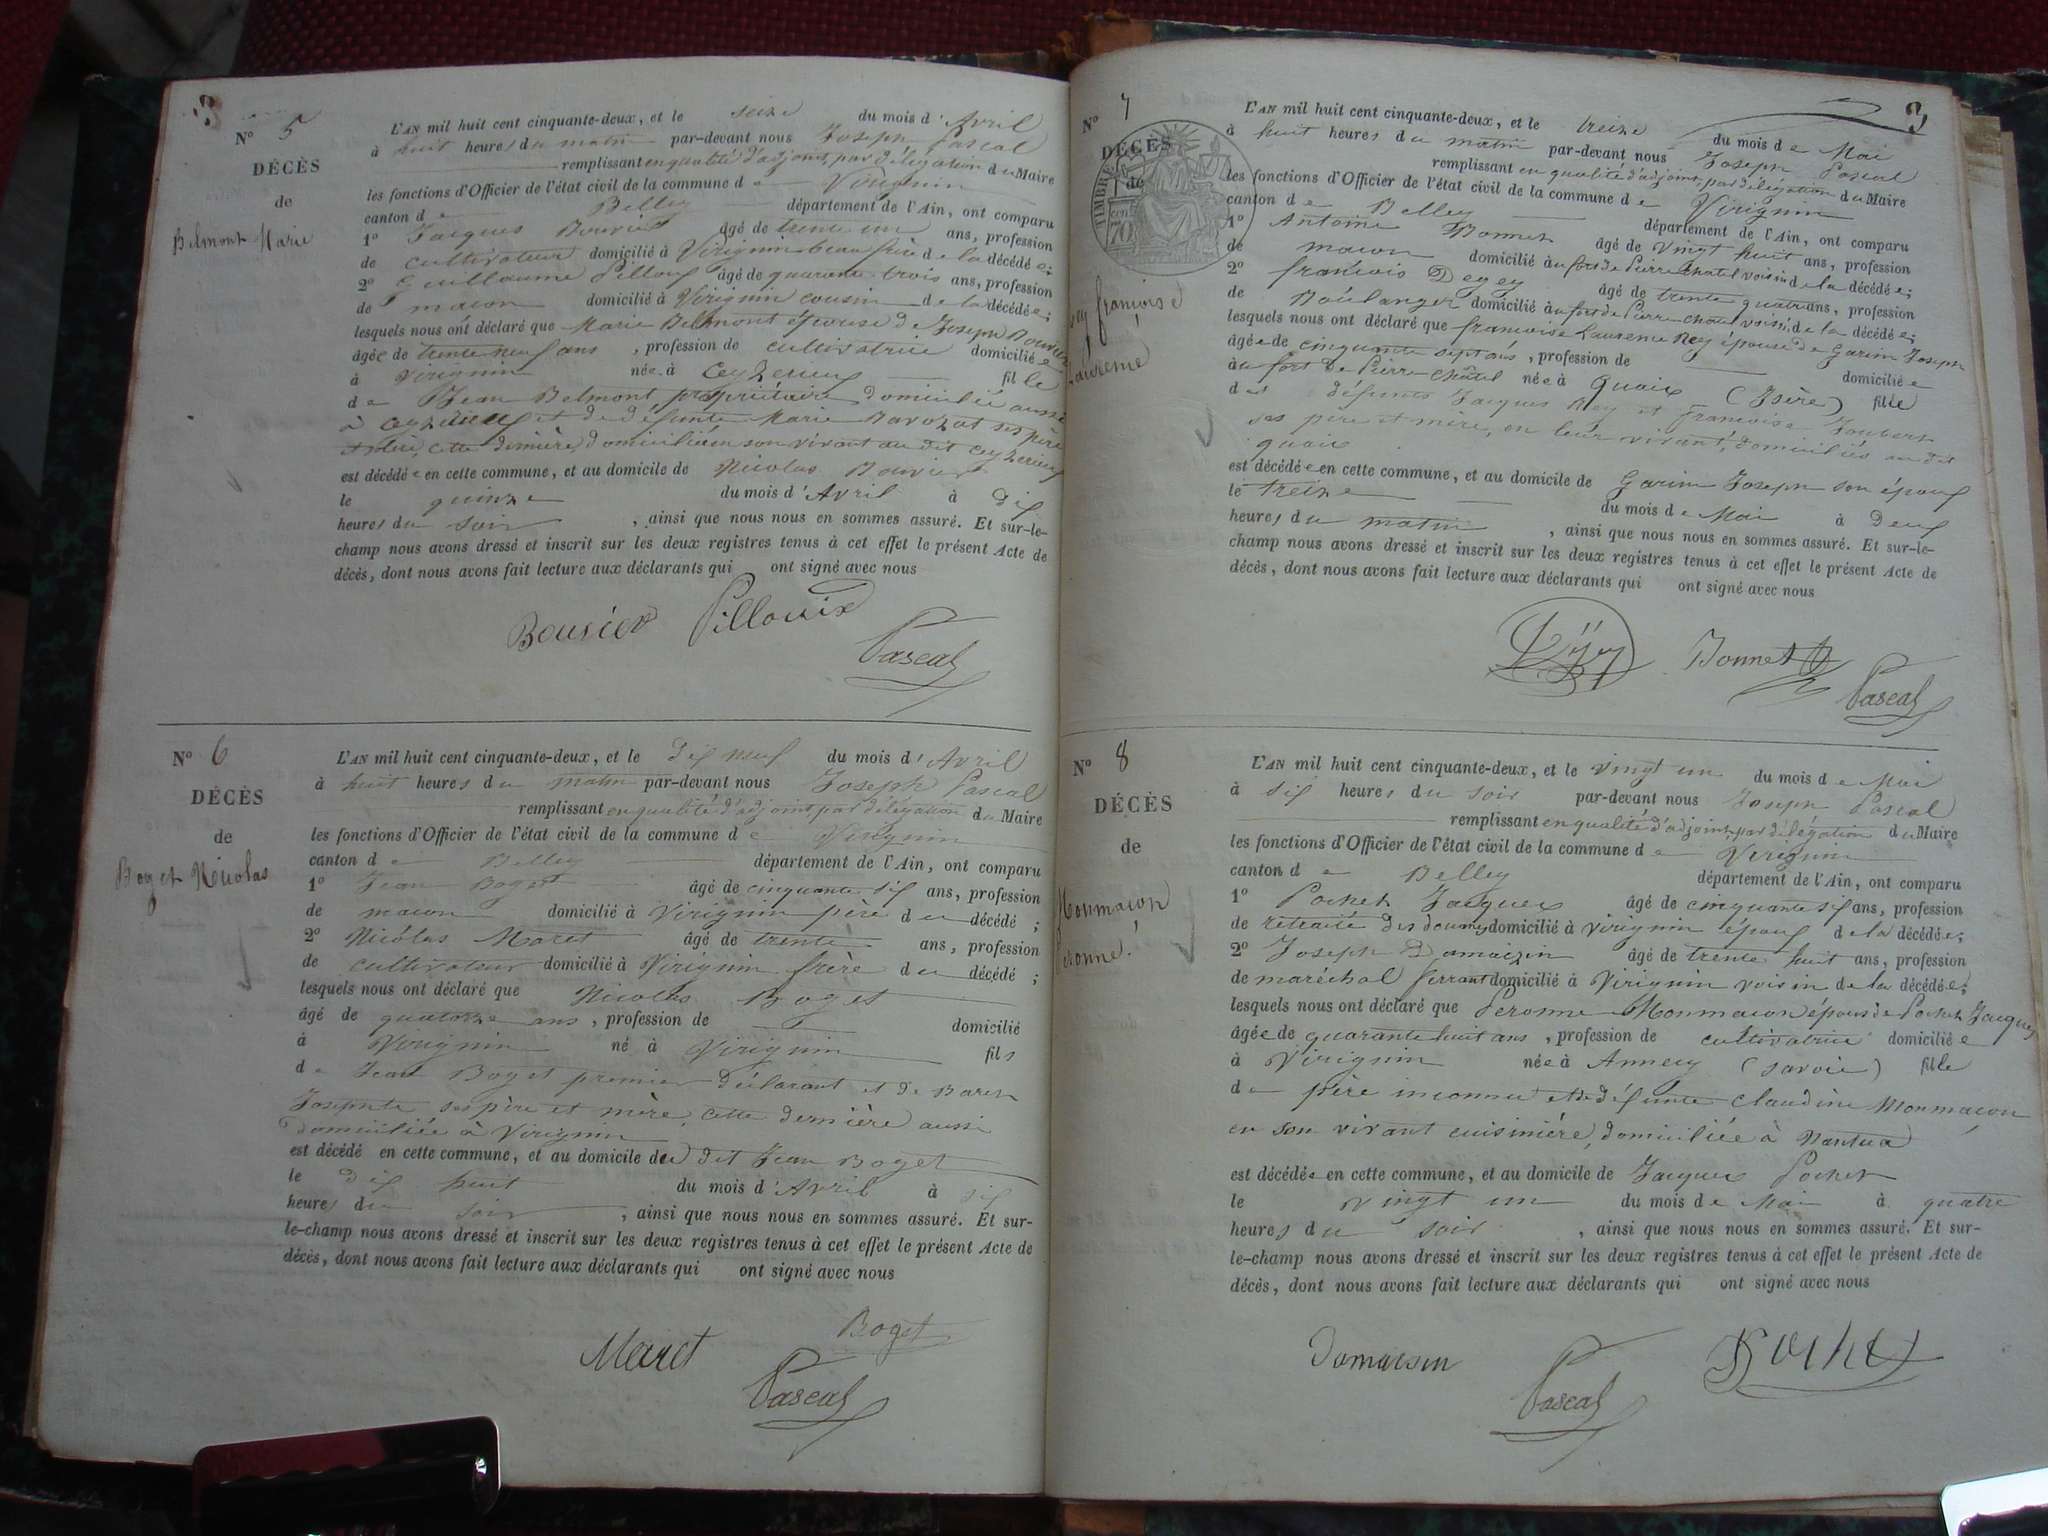 3
N° 5
DÉCÈS
de
Belmont Marie
L'AN mil huit cent cinquante-deux, et le seize du mois d'Avril
à huit heures du matin par-devant nous Joseph Pascal
remplissant en qualité d'adjoint, par délégation du Maire
les fonctions d'Officier de l'état civil de la commune de Virignin
canton de Belley département de l'Ain, ont comparu
1° Jacques Bouvier âgé de trente un ans, profession
de cultivateur domicilié à Virignin beau frère de la décédée;
2° Guillaume Pilloux âgé de quarante trois ans, profession
de macon domicilié à Virignin cousin de la décédée;
lesquels nous ont déclaré que Marie Belmont épouse de Joseph Bouvier
âgée de trente neuf ans, profession de cultivatrice domiciliée
à Virignin née à Ceyzerieu fille
de Jean Belmont propriétaire domicilié aussi
à Ceyzerieu et de défunte Marie Davozat ses père
et mère, cette dernière domiciliée en son vivant au dit Ceyzerieu
est décédée en cette commune, et au domicile de Nicolas Bouvier
le quinze du mois d'Avril à dix
heures du soir, ainsi que nous nous en sommes assuré. Et sur-le-
champ nous avons dressé et inscrit sur les deux registres tenus à cet effet le présent Acte de
décès, dont nous avons fait lecture aux déclarants qui ont signé avec nous
Bouvier Pilloux
Pascal
N° 6
DÉCÈS
de
Boget Nicolas
L'AN mil huit cent cinquante-deux, et le dix neuf du mois d'Avril
à huit heures du matin par-devant nous Joseph Pascal
remplissant en qualité d'adjoint par délégation du Maire
les fonctions d'Officier de l'état civil de la commune de Virignin
canton de Belley département de l'Ain, ont comparu
1° Jean Boget âgé de cinquante six ans, profession
de macon domicilié à Virignin père du décédé;
2° Nicolas Maret âgé de trente ans, profession
de cultivateur domicilié à Virignin frère du décédé;
lesquels nous ont déclaré que Nicolas Boget
âgé de quatorze ans, profession de domicilié
à Virignin né à Virignin fils
de Jean Boget premier déclarant et de Baret
Josephte, ses père et mère, cette dernière aussi
domiciliée à Virignin
est décédé en cette commune, et au domicile du dit Jean Boget
le dix huit du mois d'Avril à six
heures du soir, ainsi que nous nous en sommes assuré. Et sur-
le-champ nous avons dressé et inscrit sur les deux registres tenus à cet effet le présent Acte de
décès, dont nous avons fait lecture aux déclarants qui ont signé avec nous
Maret Boget
Pascal
3
N° 7
DÉCÈS
de
TIMBRE
70
françoise
Laurence
L'AN mil huit cent cinquante-deux, et le treize du mois de Mai
à huit heures du matin par-devant nous Joseph Pascal
remplissant en qualité d'adjoint, par délégation du Maire
les fonctions d'Officier de l'état civil de la commune de Virignin
canton de Belley département de l'Ain, ont comparu
1° Antoine Bonnet âgé de vingt huit ans, profession
de macon domicilié au fort de Pierre Chatel voisin de la décédée;
2° francois Degey âgé de trente quatre ans, profession
de Boulanger domicilié au fort de Pierre Chatel voisin, de la décédée;
lesquels nous ont déclaré que françoise Laurence Rey épouse de Garin Joseph
âgée de cinquante sept ans, profession de domiciliée
au fort de Pierre Châtel née à Quaix (Isère) fille
des défunts Jacques Rey et françoise Joubert
ses père et mère, en leur vivant, domiciliés au dit
quaix
est décédée en cette commune, et au domicile de Garin Joseph son époux
le treize du mois de Mai à Deux
heures du matin, ainsi que nous nous en sommes assuré. Et sur-le-
champ nous avons dressé et inscrit sur les deux registres tenus à cet effet le présent Acte de
décès, dont nous avons fait lecture aux déclarants qui ont signé avec nous
Bonnet
Pascal
N° 8
DÉCÈS
de
Monmacon
Péronne
L'AN mil huit cent cinquante-deux, et le vingt un du mois de Mai
à six heures du soir par-devant nous Joseph Pascal
remplissant en qualité d'adjoint, par délégation du Maire
les fonctions d'Officier de l'état civil de la commune de Virignin
canton de Belley département de l'Ain, ont comparu
1° Pochet Jacques âgé de cinquante six ans, profession
de retraité des douanes domicilié à virignin époux de la décédée;
2° Joseph Damaizin âgé de trente huit ans, profession
de maréchal ferrant domicilié à Virignin voisin de la décédée;
lesquels nous ont déclaré que Peronne Monmacon épouse de Pochet Jacques
âgée de quarante huit ans, profession de cultivatrice domiciliée
à Virignin née à Annecy (Savoie) fille
de père inconnu et de défunte Claudine Monmacon
en son vivant cuisinière, domiciliée à Nantua
est décédée en cette commune, et au domicile de Jacques Pochet
le vingt un du mois de Mai à quatre
heures du soir, ainsi que nous nous en sommes assuré. Et sur-
le-champ nous avons dressé et inscrit sur les deux registres tenus à cet effet le présent Acte de
décès, dont nous avons fait lecture aux déclarants qui ont signé avec nous
Pascal